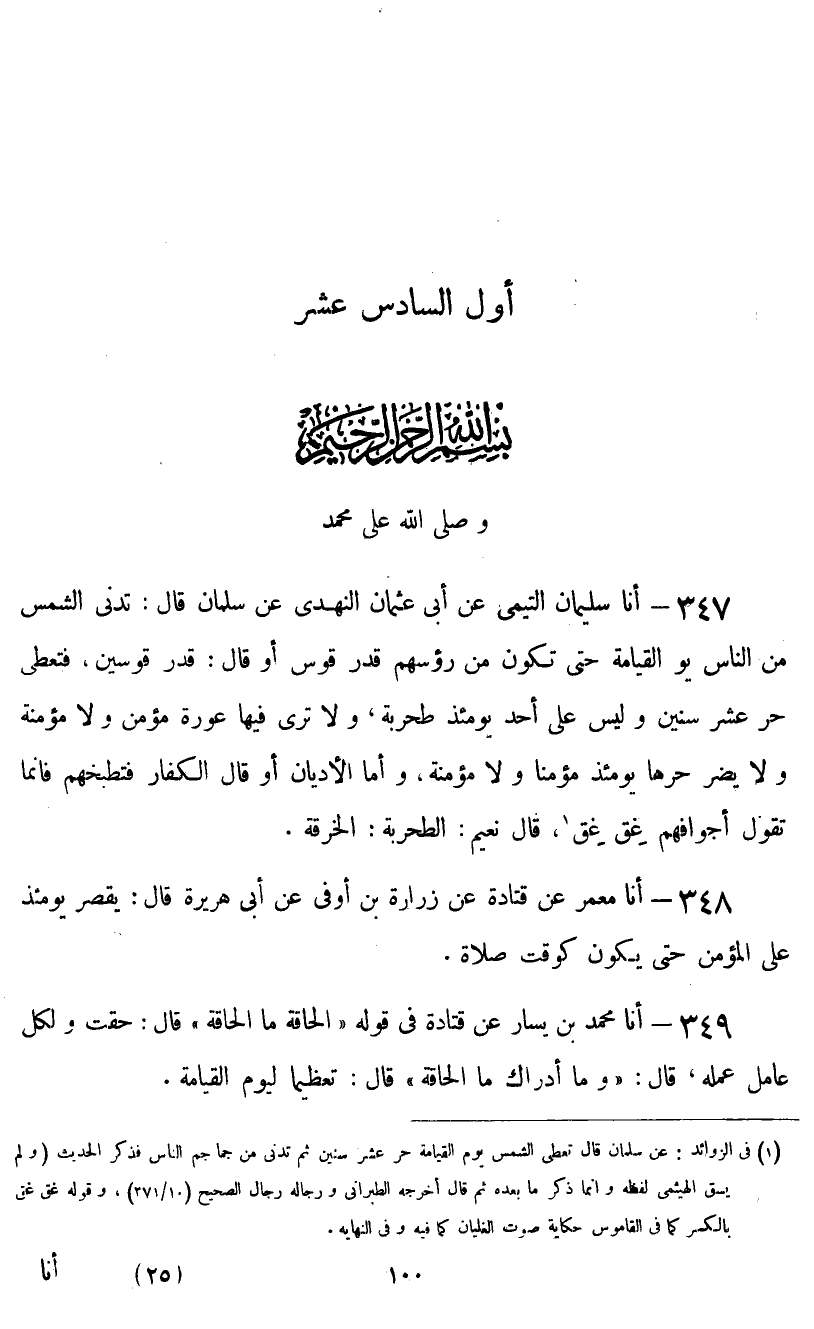 أول السادس عشر
بسم الله الرحمن الرحيم
و صلى الله على محمد
٣٤٧ – أنا سليمان التيمى عن أبى عثمان النهدى عن سلمان قال : تدنى الشمس
من الناس يو القيامة حتى تكون من رؤسهم قدر قوس أو قال : قدر قوسين ، فتعطى
حر عشر سنين و ليس على أحد يومئذ طحربة ، و لا ترى فيها عورة مؤمن و لا مؤمنة
و لا يضر حرها يومئذ مؤمنا و لا مؤمنة ، و أما الأديان أو قال الكفار فتطبخهم فانما
تقول أجوافهم غِق غِق ١ ، قال نعيم : الطحربة : الخرقة .
٣٤٨ – أنا معمر عن قتادة عن زرارة بن أوفى عن أبى هريرة قال : يقصر يومئذ
على المؤمن حتى يكون كوقت صلاة .
٣٤٩ – أنا محمد بن يسار عن قتادة فى قوله « الحاقة ما الحاقة » قال : حقت و لكل
عامل عمله ، قال : « و ما أدراك ما الحاقة » قال : تعظيما ليوم القيامة .
(١) فى الزوائد : عن سلمان قال تعطى الشمس يوم القيامة حر عشر سنين ثم تدنى من جماجم الناس فذكر الحديث (و لم
يسق الهيثمى لفظه و انما ذكر ما بعده ثم قال أخرجه الطبرانى و رجاله رجال الصحيح (٣٧١/١٠) ، و قوله غق غق
بالكسر كما فى القاموس حكاية صوت الغليان كما فيه و فى النهايه .
١٠٠ (٢٥) أنا